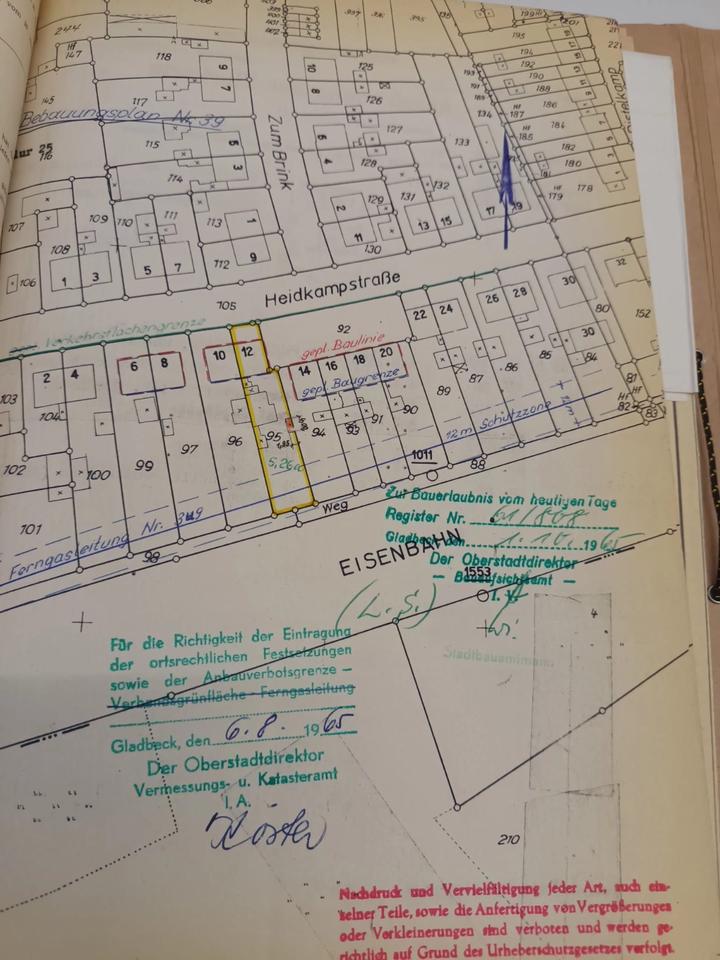 244
147
118
117
145
Bebauungsplan Nr. 39
Flur 25
116
115
114
9
7
5
3
Zum Brink
10
8
6
4
2
125
126
127
128
129
130
131
132
133
134
195
194
192
190
188
186
187
185
184
182
180
178
179
107
109
108
110
111
113
112
106
1
3
5
7
9
1
11
13
15
17
19
105
Heidkampstraße
Verkehrsflächengrenze
92
gepl. Baulinie
gepl. Baugrenze
2
4
6
8
10
12
14
16
18
20
22
24
26
28
30
30
32
80
152
103
104
102
100
101
99
97
96
95
94
93
91
90
89
87
86
85
84
81
Hf
82
83
88
98
1011
12 m Schutzzone
Ferngasleitung Nr. 3
Weg
EISENBAHN
1553
Zur Bauerlaubnis vom heutigen Tage
Register Nr. 61/808
Gladbeck, den 1. 10. 1965
Der Oberstadtdirektor
— Bauaufsichtsamt —
I. V.
(L. S.)
Stadtbauamtmann
Für die Richtigkeit der Eintragung
der ortsrechtlichen Festsetzungen
sowie der Anbauverbotsgrenze –
Verbandsgrünfläche – Ferngasleitung
Gladbeck, den 6. 8. 1965
Der Oberstadtdirektor
Vermessungs- u. Katasteramt
I. A.
Köster
4
210
Nachdruck und Vervielfältigung jeder Art, auch ein-
zelner Teile, sowie die Anfertigung von Vergrößerungen
oder Verkleinerungen sind verboten und werden ge-
richtlich auf Grund des Urheberschutzgesetzes verfolgt.